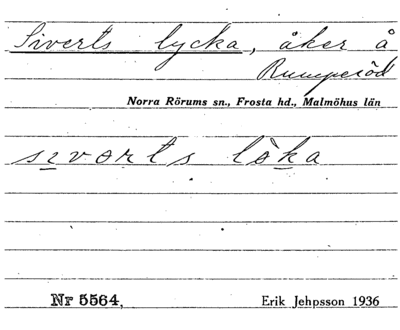 Siverts lycka, åker å
Rumperöd
Norra Rörums sn., Frosta hd., Malmöhus län
sıvərts lo̊ka
Nr 5564.
Erik Jehpsson 1936